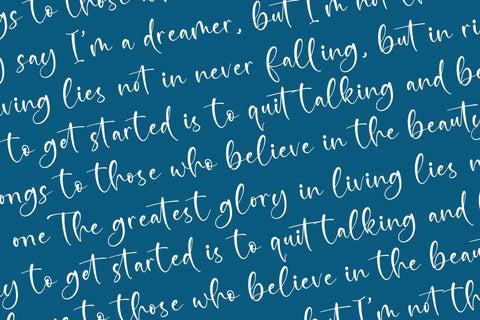 to those who
say I'm a dreamer, but I'm not th
ving lies not in never falling, but in ri
to get started is to quit talking and be
ongs to those who believe in the beauty
one The greatest glory in living lies n
y to get started is to quit talking and
to those who believe in the beau
but I'm not th